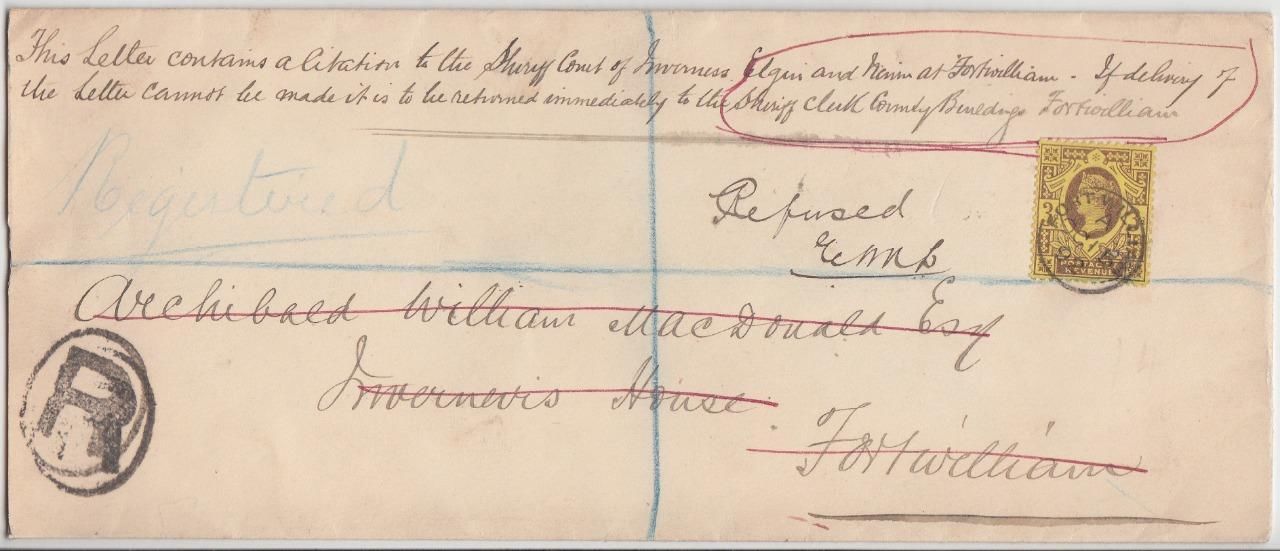 This Letter contains a Citation to the Sheriff Court of Inverness Elgin and Nairn at Fortwilliam - If delivery of
the Letter cannot be made it is to be returned immediately to the Sheriff Clerk County Buildings Fortwilliam
Registered
Refused
Archibald William MacDonald Esq
Invernevis House
Fortwilliam
R
POSTAGE
REVENUE